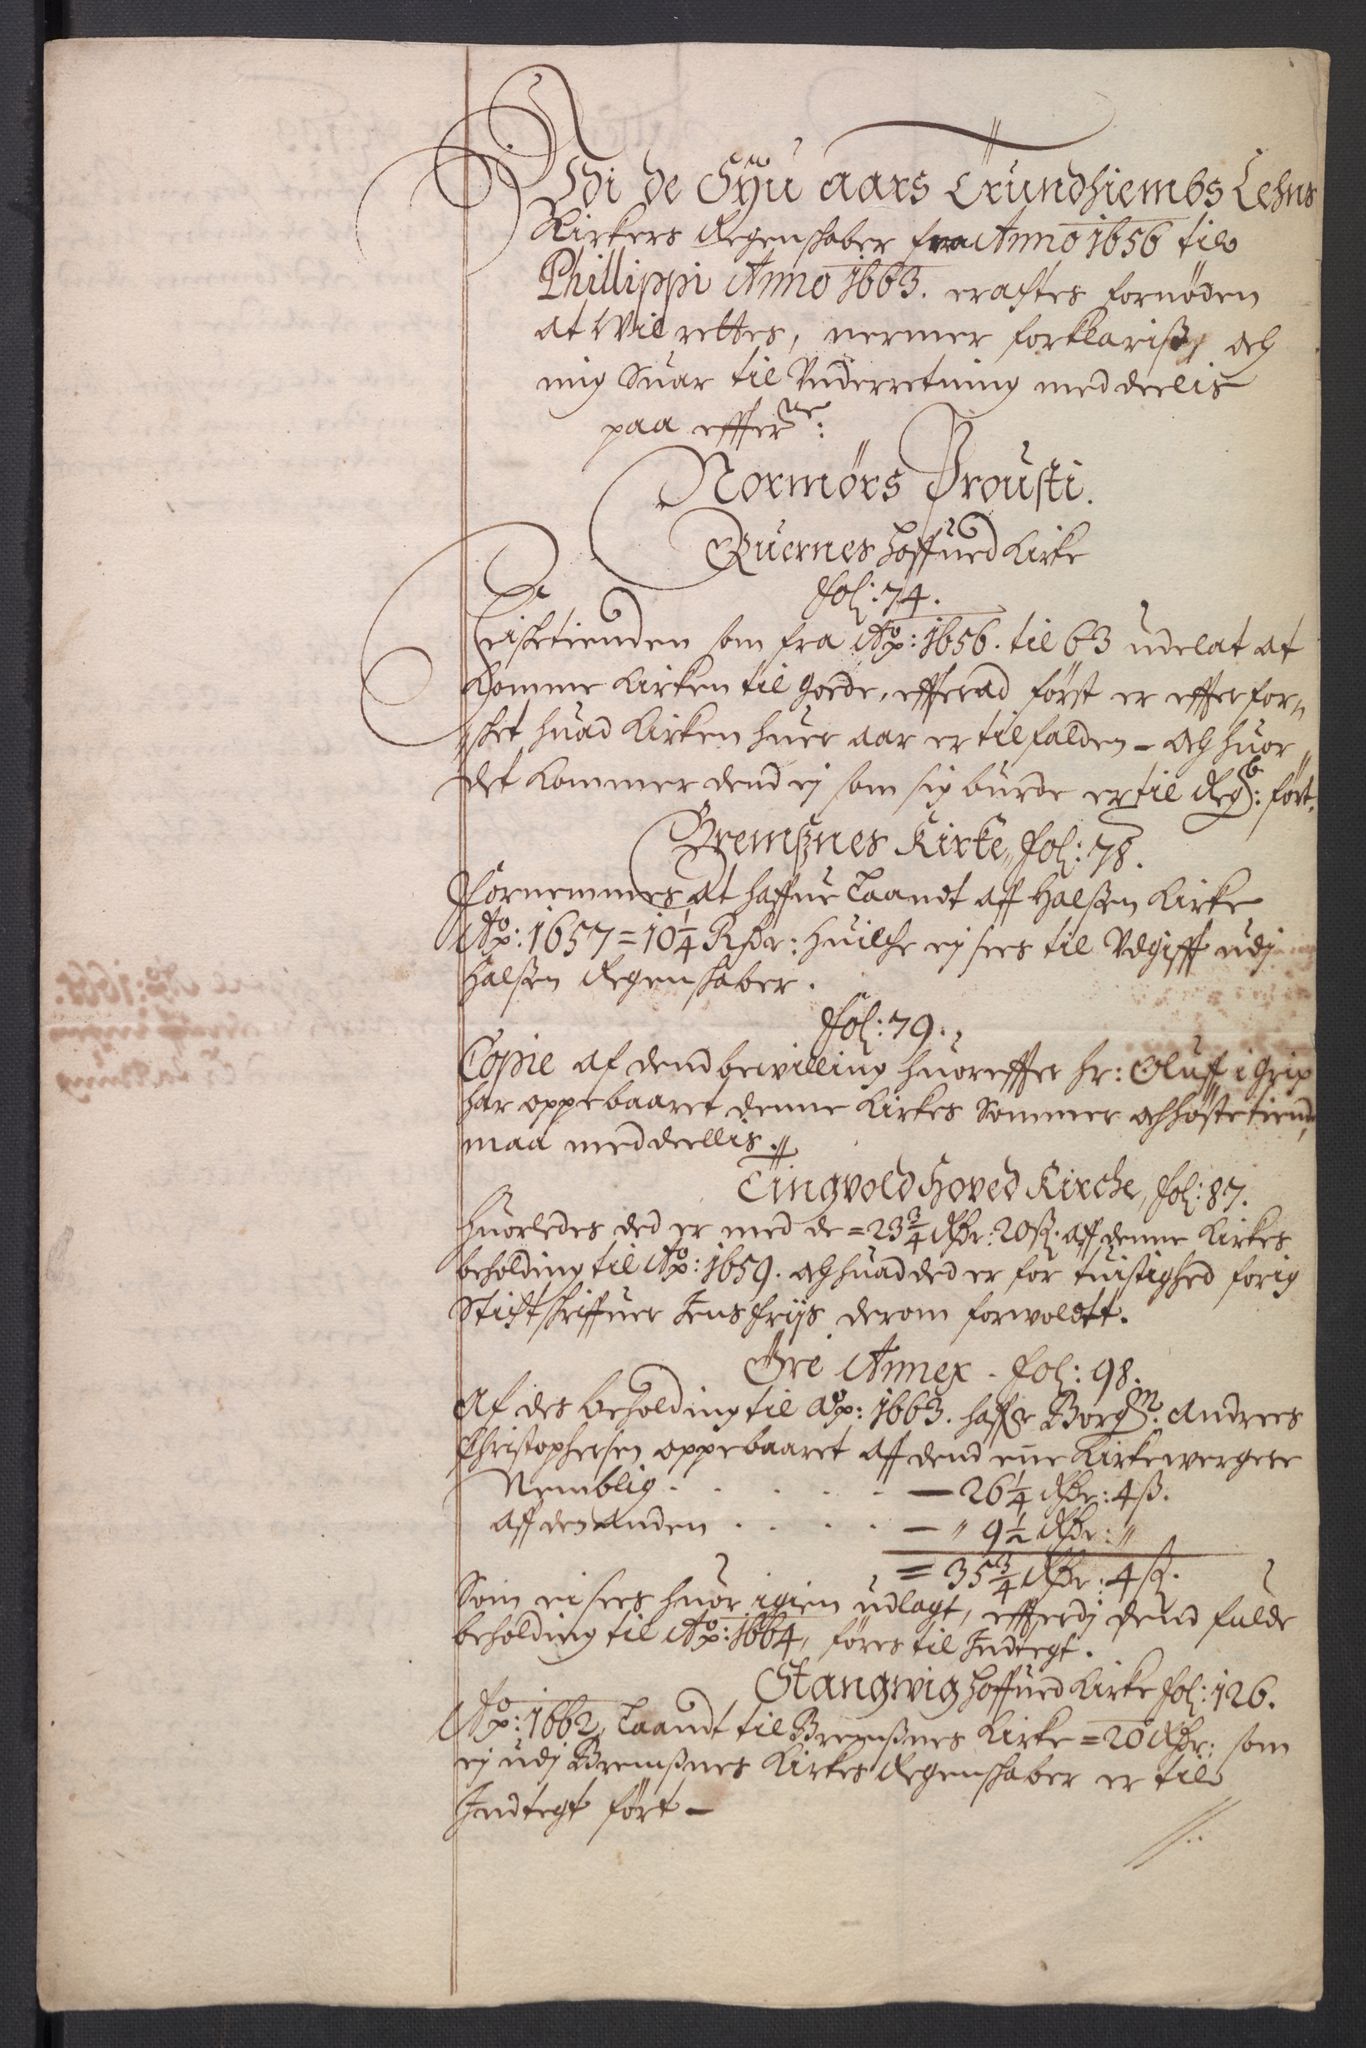 Udi de Syu aars Trundhiembs Lehns
Kirkers Regenskaber fra Anno 1656 til
Phillippi Anno 1663. eractes fornøden
at Wil rettes, nermer forklariß, och
mig Suar til Underretning meddeelis
paa effterne:
Normørs Prousti.
Quernes Hoffued Kirke
fol: 74.
Fisketienden som fra Ao: 1656. til 63 udelat at
komme Kirken til goede, efftersom først er effterfor¬
sket huad Kirken huer aar er tilfalden - och huor
det kommer dend ej som sig burde er til Regsb: ført.
Bremßnes Kirke, fol: 78.
Fornemmes at haffue Laandt aff Halßen Kirke
Ao: 1657 = 10¼ Rdr: huilche ej sees til Udgifft udj
Halßen Regenskaber.
fol: 79.
Copie af dend bevilling huoreffter Hr: Oluff i Grip
har oppebaaret denne Kirkes Sommer och Høstetiende,
maa meddeellis.
Tingvold Hoved Kirche, fol: 87.
Huorledes ded er med de = 23¾ Rdr: 20 ß. aff denne Kirkes
beholding til Ao: 1659. och huad ded er for tuistighed forig
Stiftskriffuer Jens Friis derom forvoldt.
Øre Annex. fol: 98.
Af des beholding til Ao: 1663. haffr Borgm. Andrees
Christophersen oppebaaret aff dend ene Kirkewergere
Nemblig . . . . . — 26¼ Rdr: 4 ß.
aff den anden . . . . — " 9½ Rdr: "
= 35¾ Rdr: 4 ß.
Som ei sees huor igien udlagt, effterdj dend fulde
beholding til Ao: 1664, føres til Indtegt.
Stangwig Hoffued Kirke fol: 126.
Ao: 1662, Laandt til Bremßnes Kirke = 20 Rdr: som
ej udj Bremßnes Kirkes Regenskaber er til
Indtegt ført -